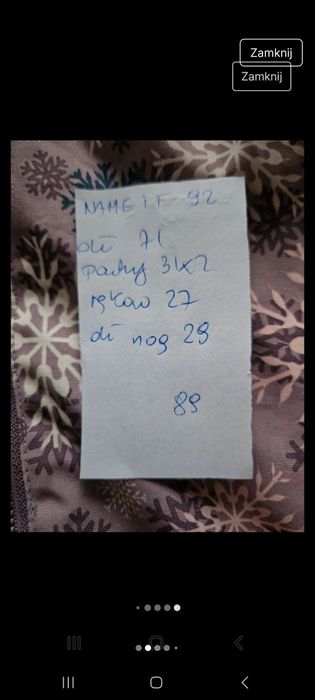 Zamknij
Zamknij
NAME IT 92
dł 71
pachy 31x2
rękaw 27
dł nog 29
89